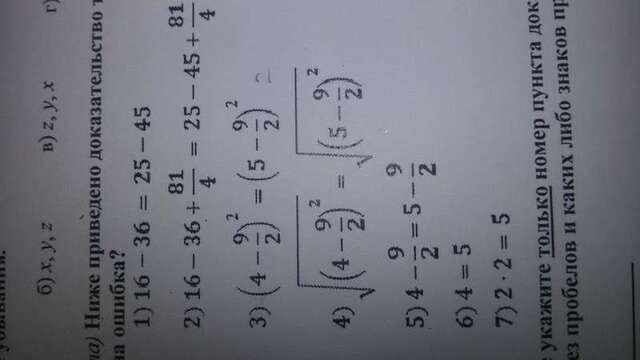 б) x, y, z в) z, y, x г)
Ниже приведено доказательство
на ошибка?
1) 16 − 36 = 25 − 45
2) 16 − 36 + 81/4 = 25 − 45 + 81/4
3) (4 − 9/2)² = (5 − 9/2)²
4) √(4 − 9/2)² = √(5 − 9/2)²
5) 4 − 9/2 = 5 − 9/2
6) 4 = 5
7) 2 · 2 = 5
укажите только номер пункта док
ез пробелов и каких либо знаков пр